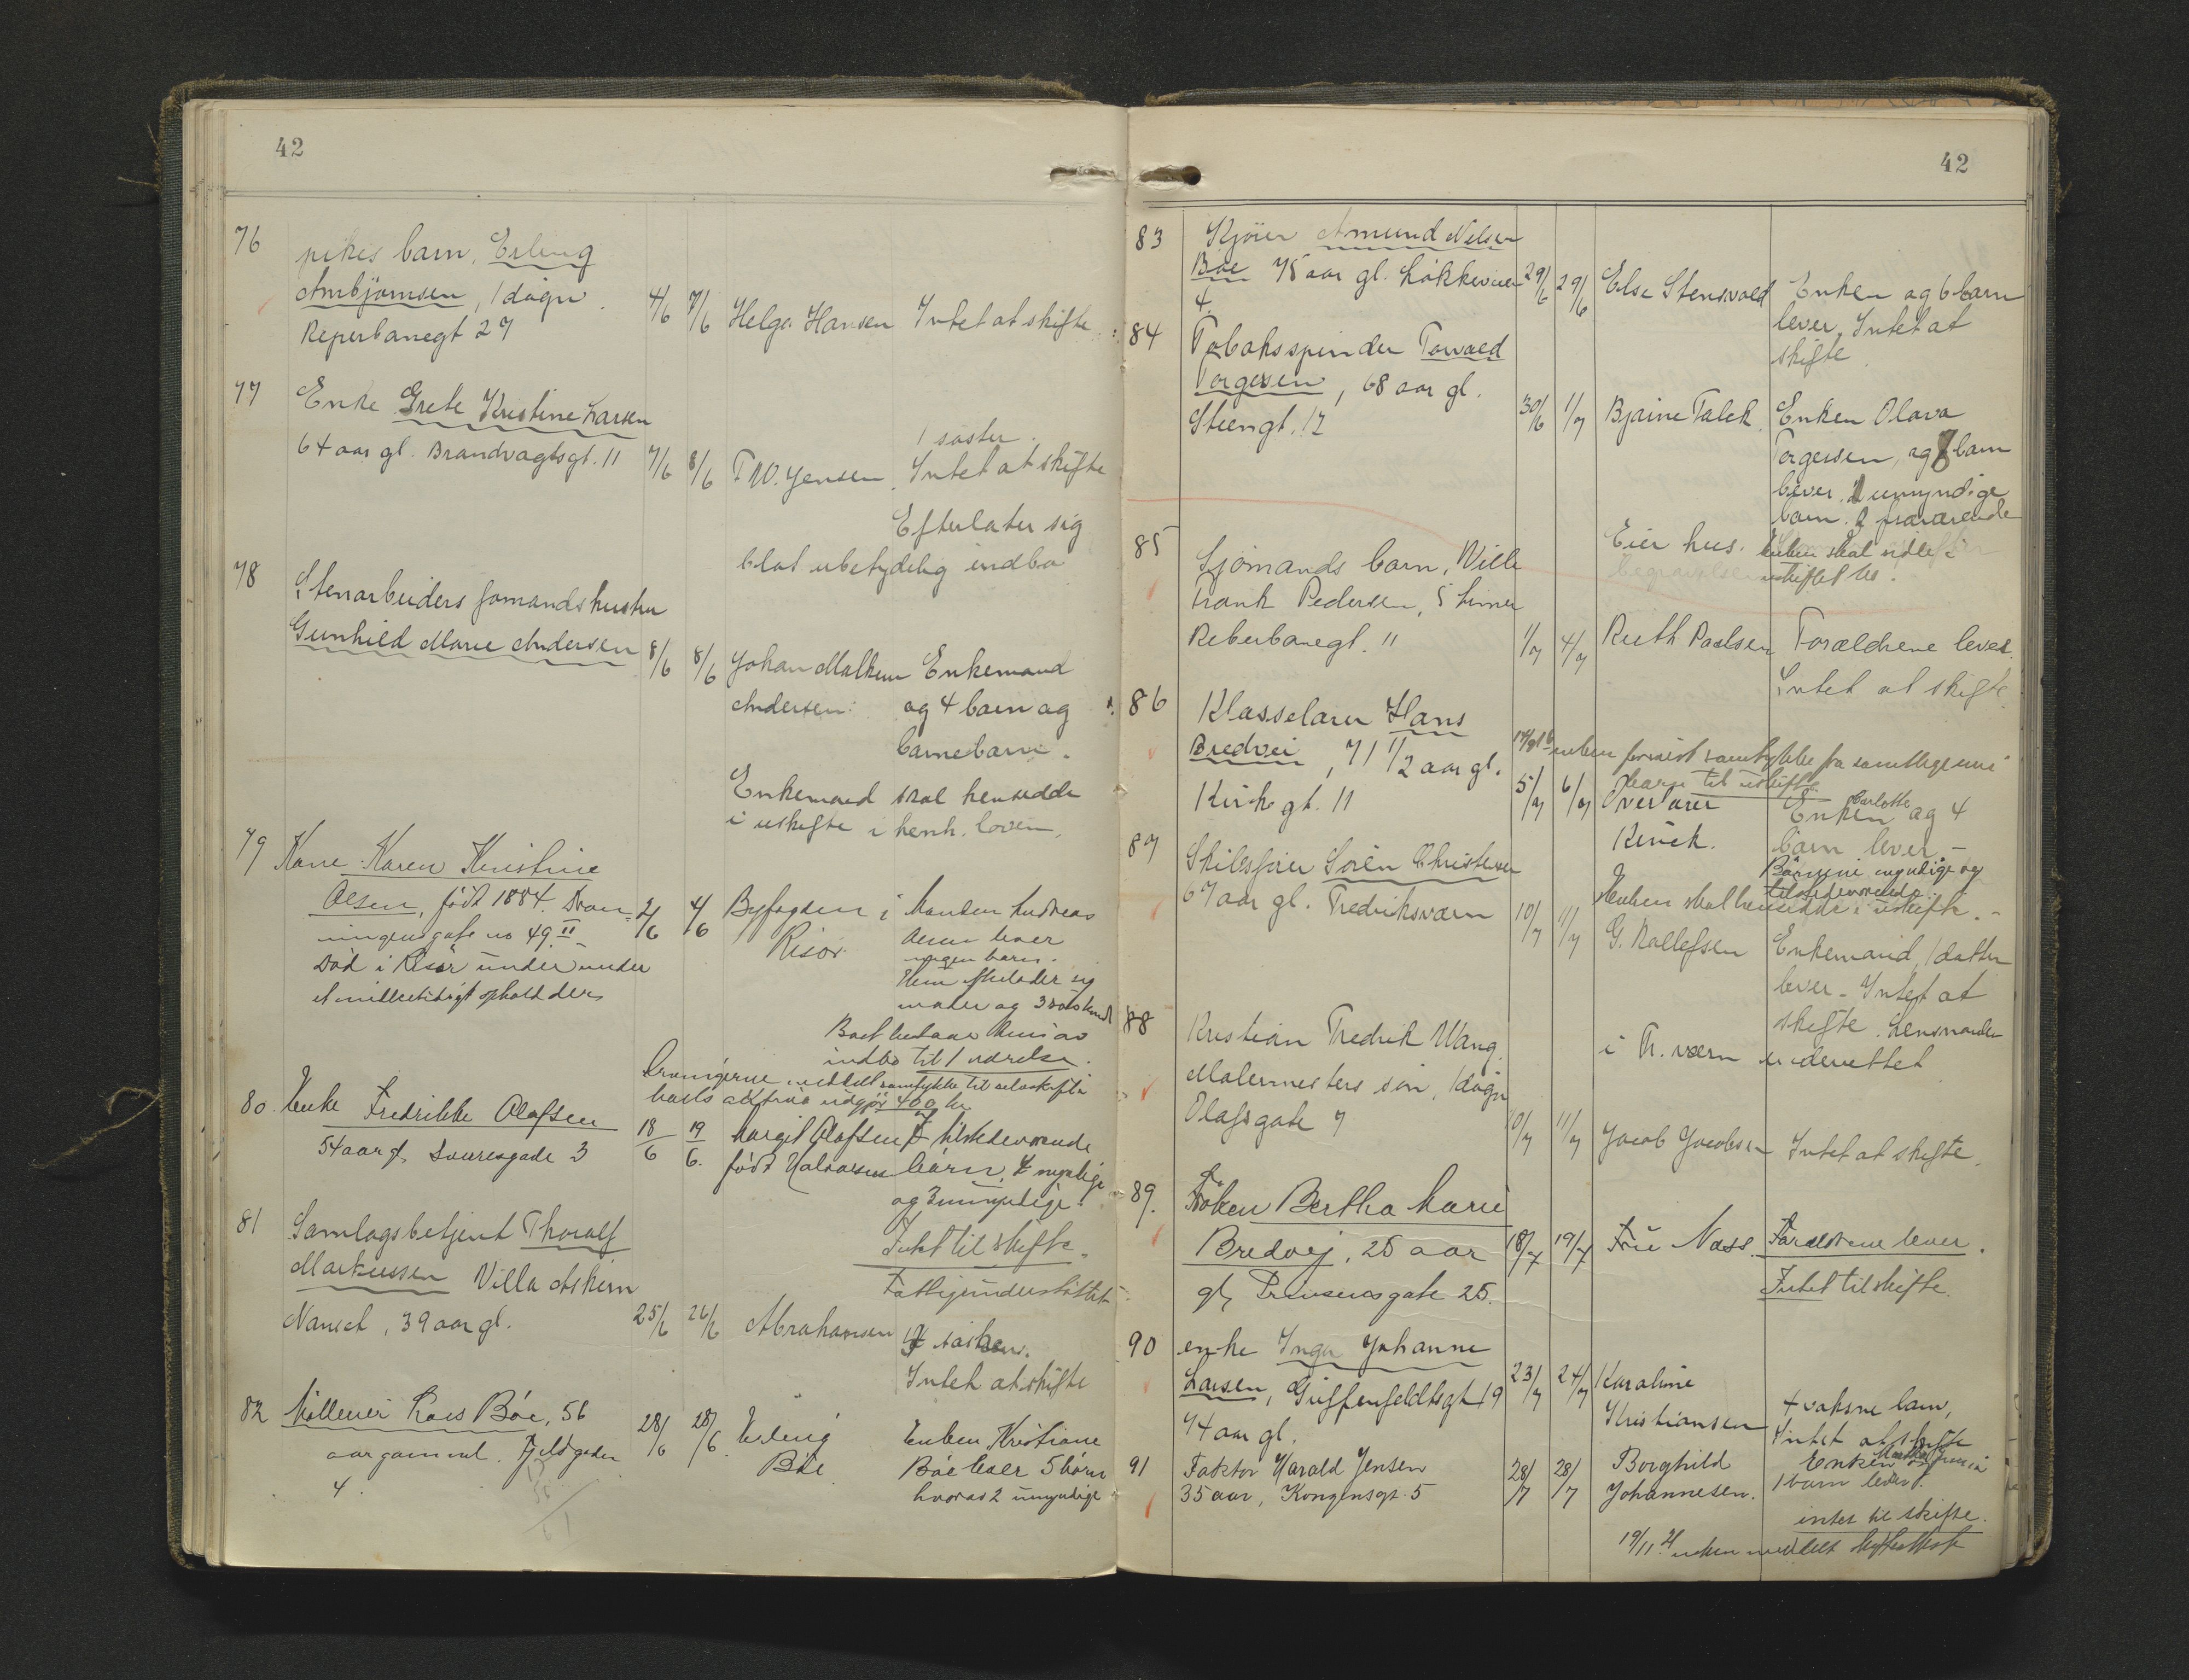 42
76
pikes barn, Erling
Arnbjørnsen, 1 døgn.
Reperbanegt 27
4/6 7/6 Helga Hansen Intet at skifte.
77
Enke Grete Kristine Larsen
64 aar gl. Brandvagtsgt. 11
7/6 8/6 T W. Jensen.
1 søster.
Intet at skifte
Efterlater sig
blot ubetydelig indbo
78
Stenarbeiders hustru
Gunhild Marie Andersen
8/6 8/6 Johan
Andersen.
Enkemand
og 4 barn og
barnebarn.
Enkemand skal hensidde
i uskifte i henh. loven.
79 Kone Karen Kristine
Olsen, født 1884.
no 49 II
Død i Risør under
ophold der
2/6 4/6 Byfogden i
Risør
Manden Andreas
Olsen lever
ingen barn.
moder og 3
Boet
indbo til 1 værelse.
samtykke til
400 kr
80. Enke Fredrikke Olafsen
54 aar gl,
3
18/6 19/6. Margit Olafsen
født Halvorsen
7 tilstedeværende
børn, 4 myndige
og 3 umyndige.
Intet til skifte.
Fattigunderstøttet
81
Samlagsbetjent Thoralf
Markussen Villa
Nanset, 39 aar gl.
25/6 26/6 Abrahamsen
Intet at skifte
82 Møller Lars Bøe, 56
aar gammel. Fjeldgaden
4.
28/6 28/6 Erling
Bøe
Enken Kristiane
Bøe lever 5 børn
hvorav 2 umyndige
42
83
Kjører Amund Nelsen
Bøe 75 aar gl. Løkkeveien
4.
29/6 29/6 Else Stensvold
Enken og 6 barn
lever. Intet at
skifte
84
Tobaksspinder Torvald
Torgersen, 68 aar gl.
Steengt. 12
30/6 1/7 Bjarne Falck.
Enken Olava
Torgersen, og 8 barn
lever. 1 umyndige
barn. 2 fraværende
Eier hus.
enken skal sidde i
uskiftet bo.
85
Sjømands barn, Wille
Frank Pedersen, 5 timer
Reberbanegt. 11
1/7 4/7 Ruth Paulsen
Forældrene lever.
Intet at skifte.
86
Klasselærer Hans
Bredvei, 71 1/2 aar gl.
Kirkegt. 11
samtykke fra samtlige
til uskifte
5/7 6/7 Overlærer
Enken Charlotte og 4
barn lever -
myndige og
tilstedeværende.
Enken skal hensidde i uskifte. -
87
Skibsfører Søren Christensen
67 aar gl. Fredriksværn
10/7 11/7 G. Rollefsen
Enkemand, 1 datter
lever - Intet at
skifte. Lensmanden
i Fr. værn underrettet
88
Kristian Fredrik Wang.
Malermesters søn, 1 døgn
Olafsgate 7
10/7 11/7 Jacob Jacobsen
Intet at skifte.
89.
Frøken Bertha Marie
Bredvej, 25 aar
gl, Prinsensgate 25.
18/7 19/7 Frue Næss.
Forældrene lever.
Intet til skifte.
90
enke Inga Johanne
Larsen, Griffenfeldtsgt 19
74 aar gl.
23/7 24/7 Karoline
Kristiansen
4 voksne barn,
Intet at skifte
91
Faktor Harald Jensen
35 aar, Kongensgt. 5
28/7 28/7
Borghild
Johannesen.
Enken og
1 barn lever.
intet til skifte.
19/11 21 enken meddelt skifteattest